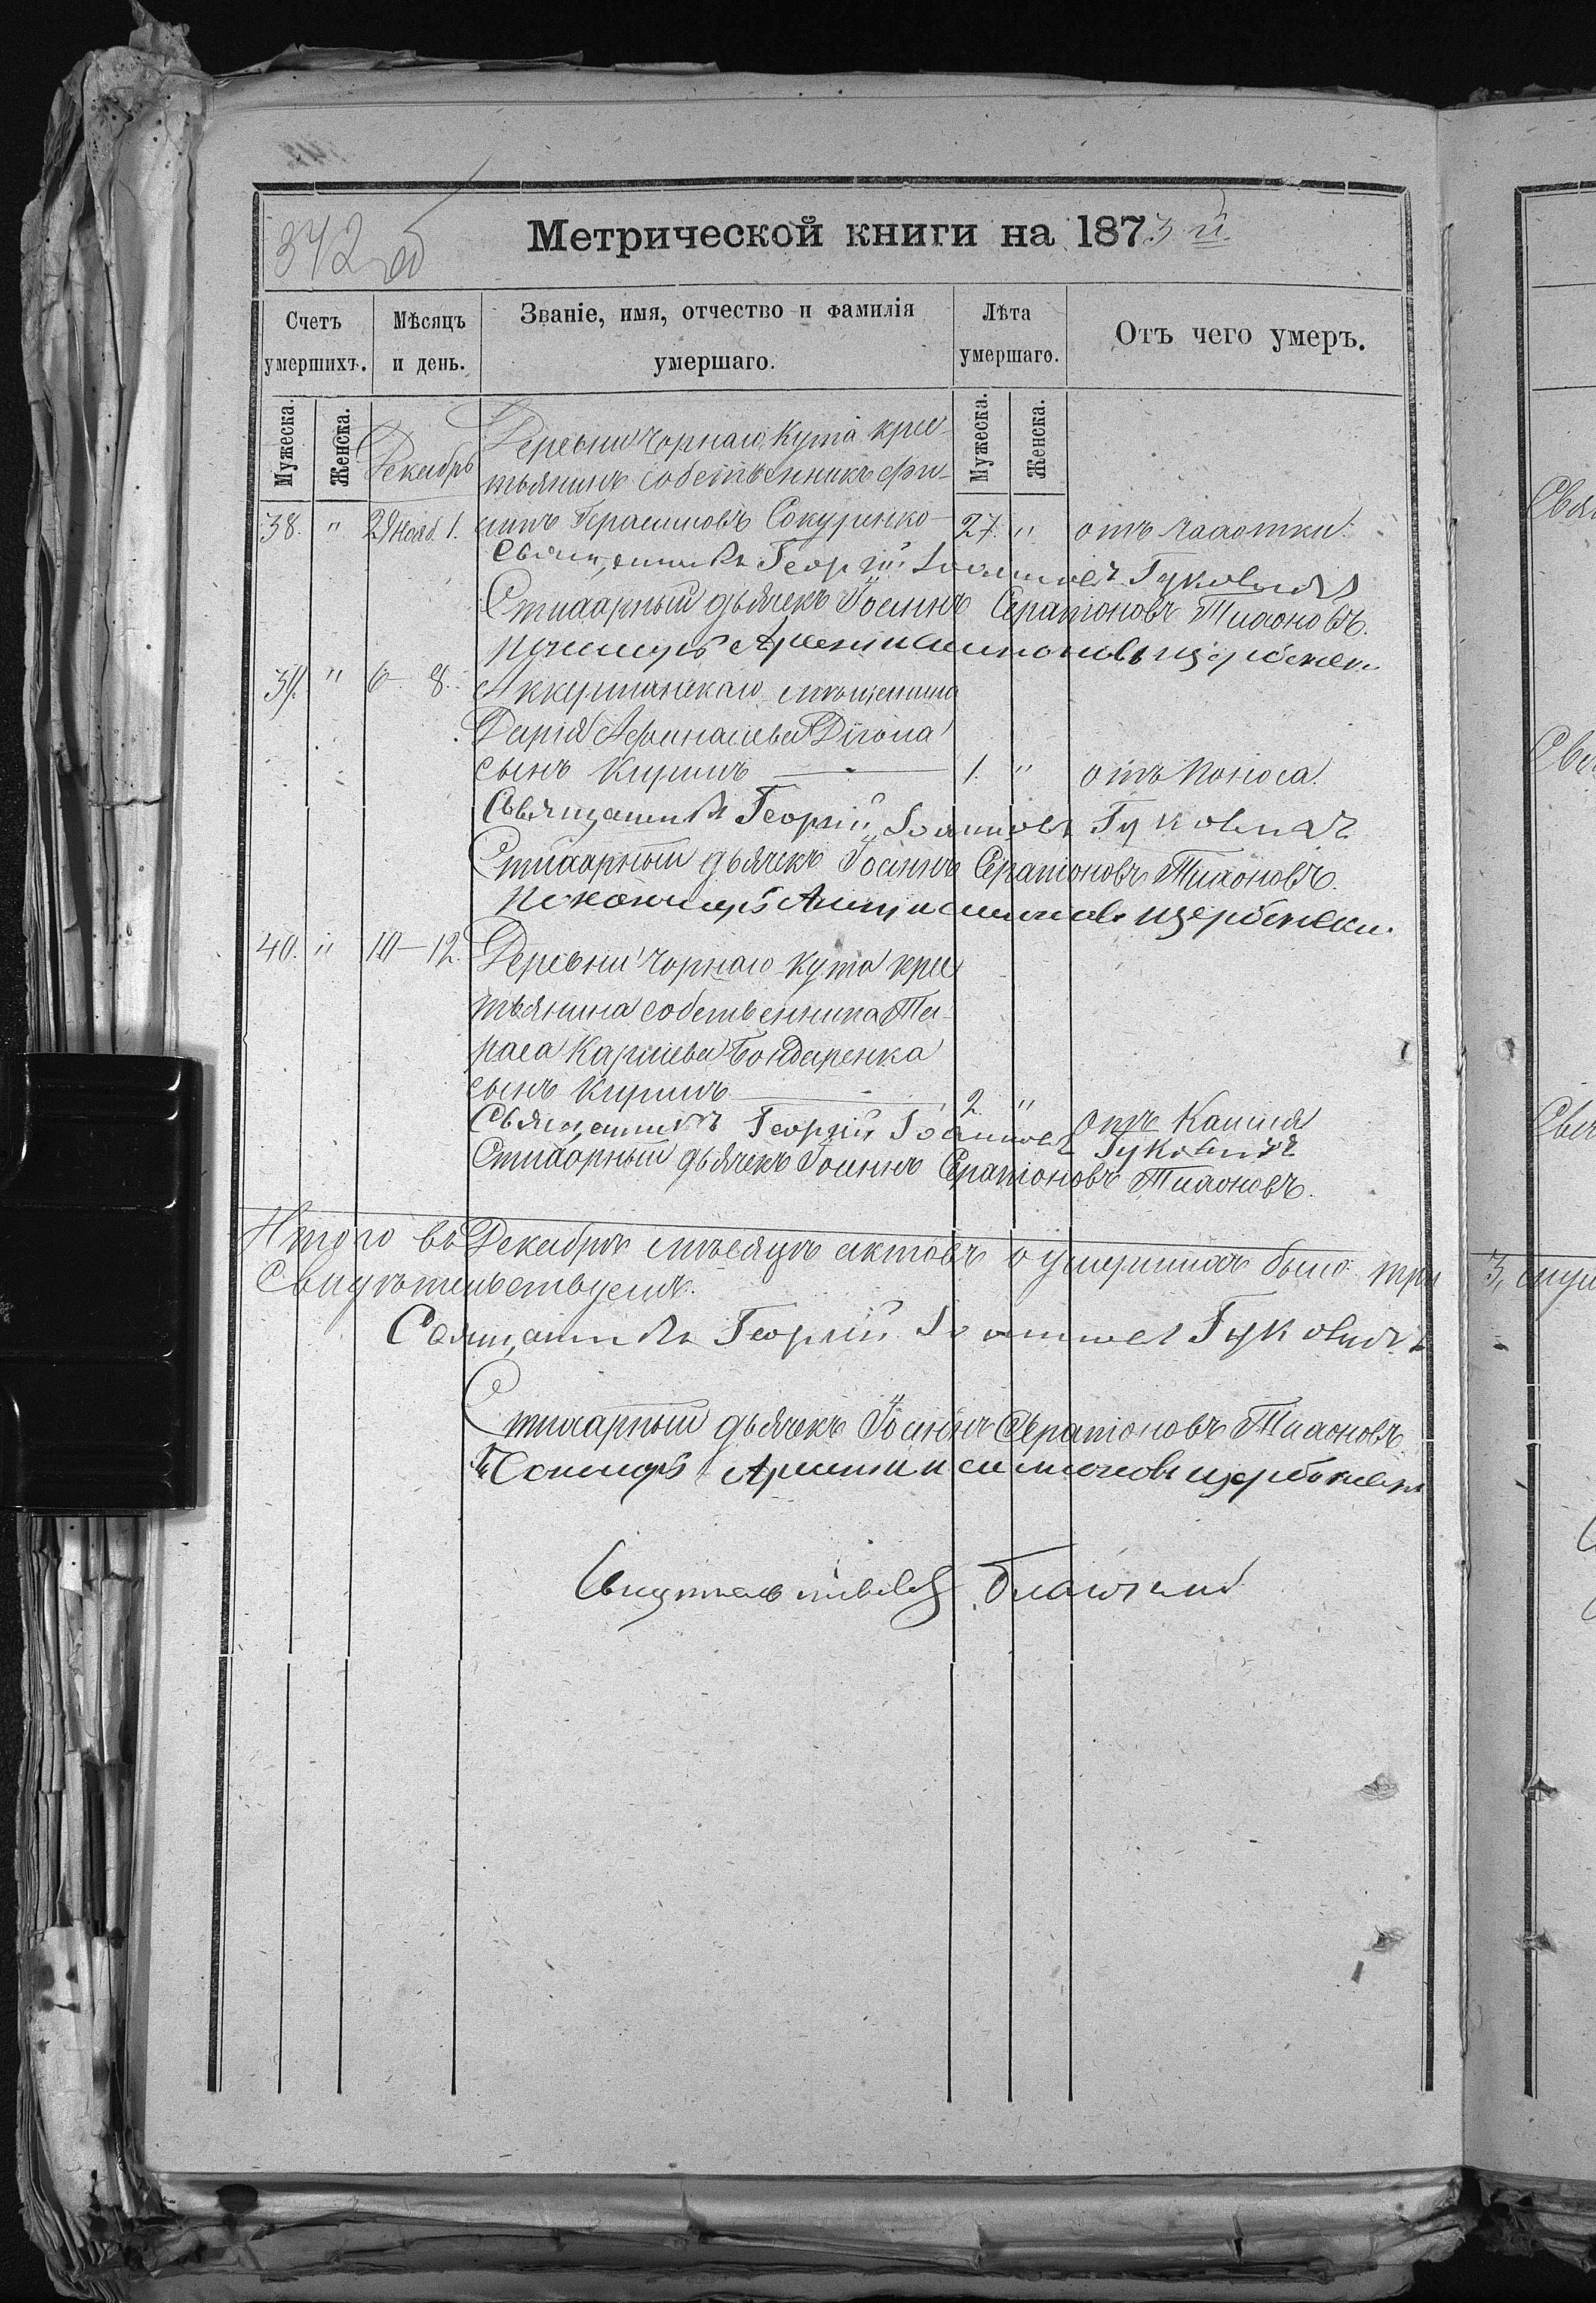 342 об
Метрической книги на 1873 й.
Счетъ умершихъ.
Мѣсяцъ и день.
Званіе, имя, отчество и фамилія умершаго.
Лѣта умершаго.
Отъ чего умеръ.
Мужеска.
Женска.
Мужеска.
Женска.
Декабрь
Деревни Чорнаго Кута крес-
тьянинъ собственникъ Фи-
38. " 29 нояб. 1. липъ Герасимовъ Сокуренко — 27. " отъ чахотки.
Священникъ Георгій Іоанновъ Гуковичъ
Стихарный дьячекъ Іоаннъ Серапіоновъ Тихоновъ.
39. " 6 - 8. Аккерманскаго мѣщанина
Сынъ Кирилъ — 1. " отъ поноса.
Священникъ Георгій Іоанновъ Гуковичъ
Стихарный дьячекъ Іоаннъ Серапіоновъ Тихоновъ.
40. " 10 — 12. Деревни Чорнаго Кута крес
тьянина собственника Та-
раса Карпиева Бондаренка
сынъ Кирилъ — 2. "
отъ Кашля
Священникъ Георгій Іоанновъ Гуковичъ
Стихарный дьячекъ Іоаннъ Серапіоновъ Тихоновъ.
Итого въ Декабрѣ мѣсяцѣ актовъ о умершихъ было три
Свидѣтельствуемъ.
Священникъ Георгій Іоанновъ Гуковичъ
Стихарный дьячекъ Іоаннъ Серапіоновъ Тихоновъ.